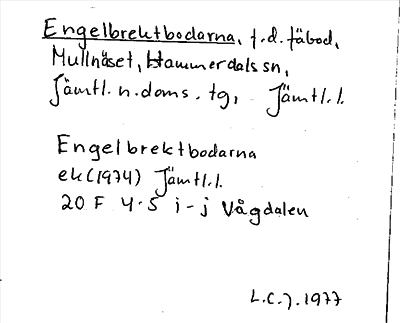 Engelbrektbodarna, f.d. fäbod,
Mullnäset, Hammerdals sn,
Jämtl. n. doms. tg, Jämtl. l.
Engelbrektbodarna
ek (1974) Jämtl. l.
20 F 4-5 i-j Vågdalen
L.C.J. 1977